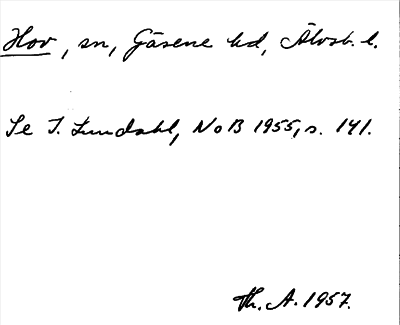 Hov, sn, Gäsene hd, Älvsb. l.
Se I. Lundahl, NoB 1955, s. 141.
Th. A. 1957.